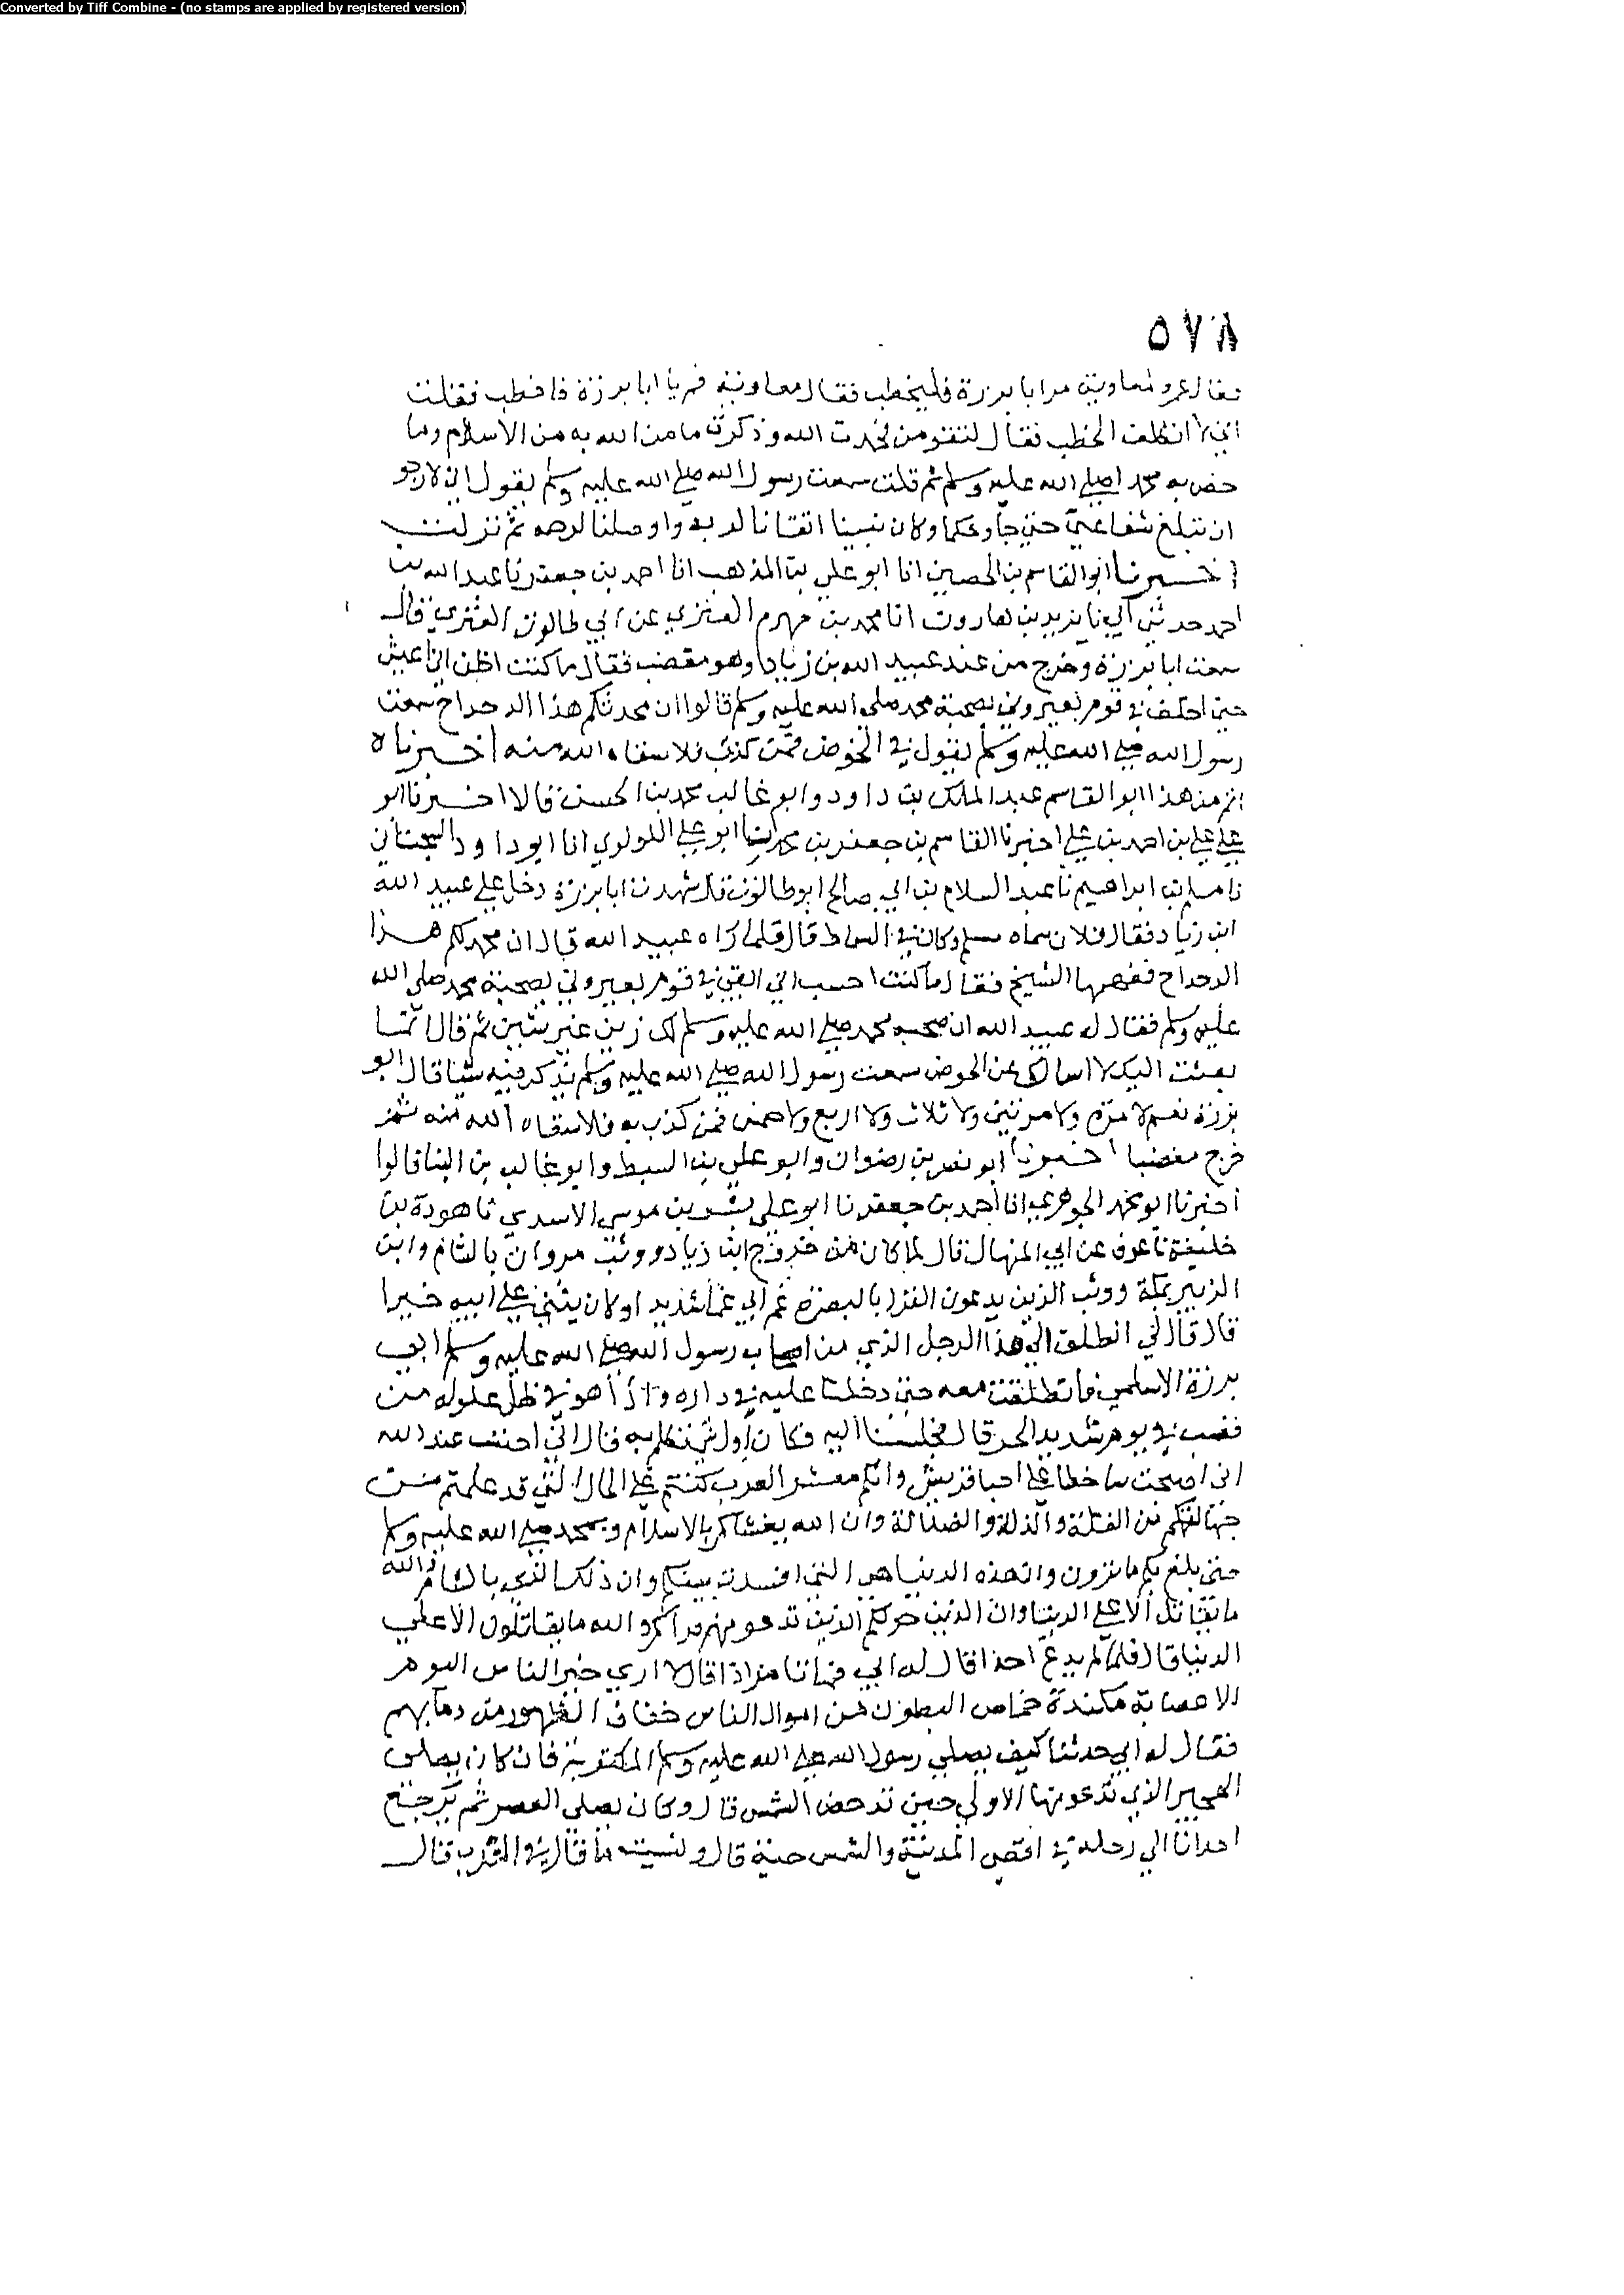 Converted by Tiff Combine - (no stamps are applied by registered version)
٥٧٨
فقال عمرو لمعاوية مر ابا برزة فليخطب فقال معاوية قم يا ابا برزة فاخطب فقلت
اني لا اتكلف الخطب فقال لتقومن فحمدت الله وذكرت ما من الله به من الاسلام وما
خص به محمدا صلى الله عليه وسلم ثم قلت سمعت رسول الله صلى الله عليه وسلم يقول اني لارجو
ان تبلغ شفاعتي حتى جا وحكما وكان نبينا اتقانا لربه واوصلنا لرحمه ثم نزلت
اخبرنا ابو القاسم بن الحصين انا ابو علي بن المذهب انا احمد بن جعفر نا عبد الله بن
احمد حدثني ابي نا يزيد بن هاروت انا محمد بن مهزم العنزي عن ابي طالوت العنزي قال
سمعت ابا برزة وخرج من عند عبيد الله بن زياد وهو مغضب فقال ما كنت اظن اني اعيش
حتى اخلف في قوم يعيروني بصحبة محمد صلى الله عليه وسلم قالوا ان محمديكم هذا الدحداح سمعت
رسول الله صلى الله عليه وسلم يقول في الحوض فمن كذب فلا سقاه الله منه اخبرناه
اتم من هذا ابو القاسم عبد الملك بن داود وابو غالب محمد بن الحسن قالا اخبرنا ابو
علي علي بن احمد بن علي اخبرنا القاسم بن جعفر بن محمد نا ابو علي اللولوي انا ابو داود السجستاني
نا مسلم بن ابراهيم نا عبد السلام بن ابي صالح ابو طالوت قال شهدت ابا برزة دخل على عبيد الله
ابن زياد فقال فلان سماه مسلم وكان في السماط قال فلما راه عبيد الله قال ان محمديكم هذا
الدحداح ففهمها الشيخ فقال ما كنت احسب اني ابقى في قوم يعيروني بصحبة محمد صلى الله
عليه وسلم فقال له عبيد الله ان صحبه محمد صلى الله عليه وسلم لك زين غير شين ثم قال انما
بعثت اليك لاسالك عن الحوض سمعت رسول الله صلى الله عليه وسلم يذكر فيه شيا قال ابو
برزة نعم لا مرة ولا مرتين ولا ثلاث ولا اربع ولا خمس فمن كذب به فلا سقاه الله منه ثم
خرج مغضبا اخبرنا ابو نصر بن رضوان وابو علي بن السبط وابو غالب بن البنا قالوا
اخبرنا ابو محمد الجوهري انا احمد بن جعفر نا ابو علي بشر بن موسى الاسدي نا هودة بن
خليفة نا عوف عن ابي المنهال قال لما كان من خروج ابن زياد ووثب مروان بالشام وابن
الزبير بمكة ووثب الذين يدعون القرا بالبصرة غم ابي غما شديدا وكان يثني على ابيه خيرا
قال قال لي انطلق الى هذا الرجل الذي من اصحاب رسول الله صلى الله عليه وسلم ابي
برزة الاسلمي فانطلقت معه حتى دخلنا عليه في داره واذا هو في ظل علو له من
قصب في يوم شديد الحر قال فجلسنا اليه فكان اول شي تكلم به قال اني احتسب عند الله
اني اصبحت ساخطا على احيا قريش وانكم معشر العرب كنتم على الحال التي قد علمتم من
جهالتكم من القلة والذلة والضلالة وان الله نعشكم بالاسلام وبمحمد صلى الله عليه وسلم
حتى بلغ بكم ما ترون وان هذه الدنيا هي التي افسدت بينكم وان ذلك الذي بالشام والله
ما يقاتل الا على الدنيا وان الذين حولكم الذين تدعونهم قراكم والله ما يقاتلون الا على
الدنيا قال فلما لم يدع احدا قال له ابي فما تامر اذا قال لا ارى خير الناس اليوم
الا عصابة ملبدة خماص البطون من اموال الناس خفاف الظهور من دمايهم
فقال له ابي حدثنا كيف يصلي رسول الله صلى الله عليه وسلم المكتوبة قال كان يصلي
الهجير الذي تدعونها الاولى حين تدحض الشمس قال وكان يصلي العصر ثم يرجع
احدنا الى رحله في اقصى المدينة والشمس حية قال ونسيت ما قال في المغرب قال